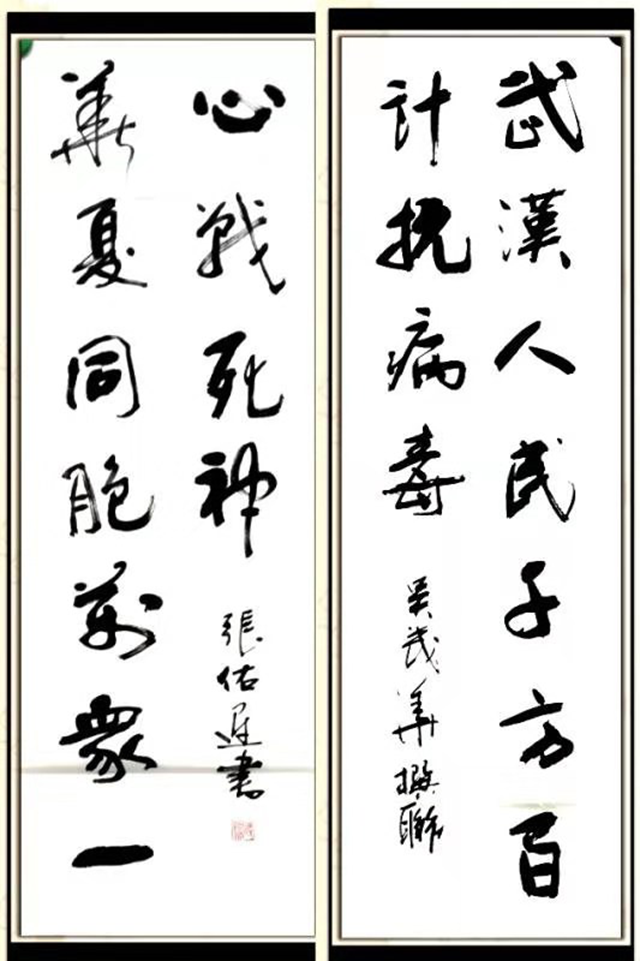 武漢人民千方百
計抗病毒
吴華撰聯
華夏同胞萬衆一
心戰死神
張佑書